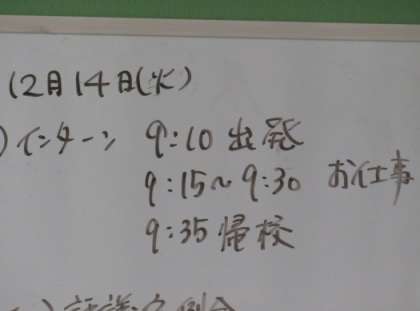 12月14日(火)
)インターン 9:10 出発
9:15~9:30 お仕事
9:35 帰校